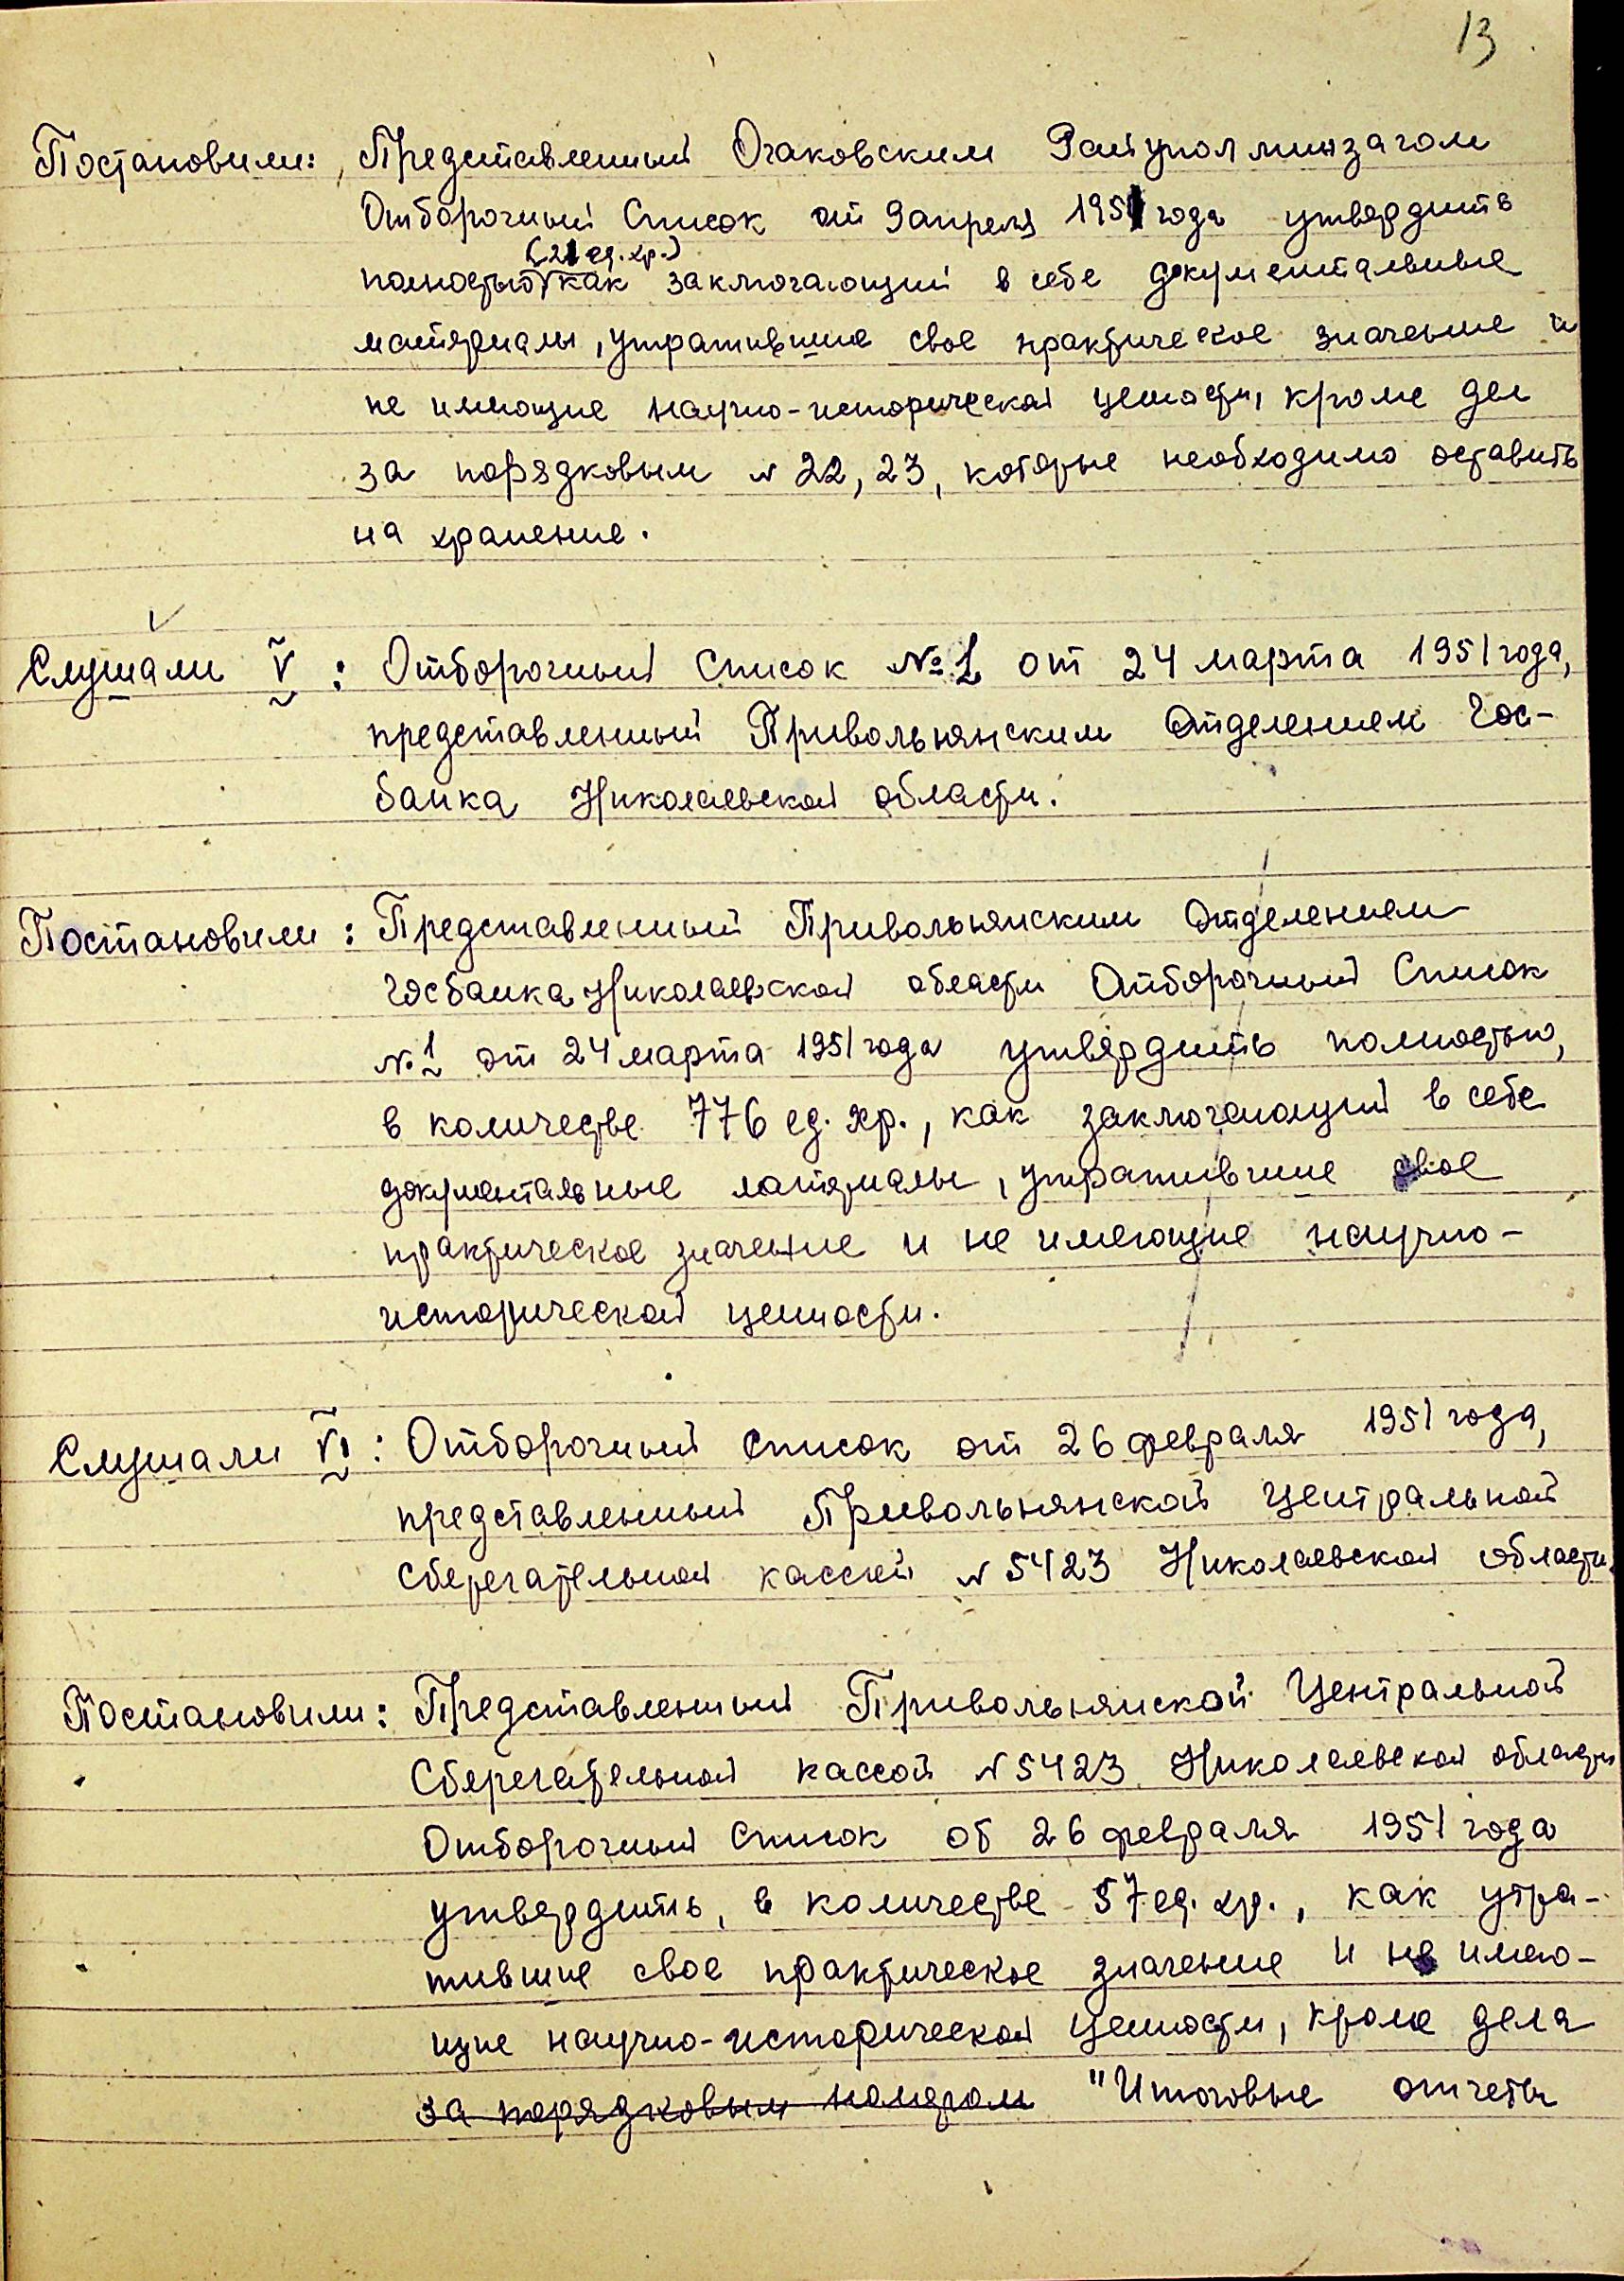 13
Постановили: Представленный Очаковским Райуполминзагом
Отборочный Список от 9 апреля 1951 года утвердить
(21 ед. хр.)
полностью как заключающий в себе документальные
материалы, утратившие свое практическое значение и
не имеющие научно-исторической ценности, кроме дел
за порядковым № 22, 23, которые необходимо оставить
на хранение.
Слушали V : Отборочный Список №1 от 24 марта 1951 года,
представленный Привольнянским Отделением Гос-
банка Николаевской области.
Постановили : Представленный Привольнянским Отделением
Госбанка Николаевской области Отборочный Список
№ 1 от 24 марта 1951 года утвердить полностью,
в количестве 776 ед. хр., как заключающий в себе
документальные материалы, утратившие свое
практическое значение и не имеющие научно-
исторической ценности.
Слушали VI : Отборочный список от 26 февраля 1951 года,
представленный Привольнянской Центральной
Сберегательной кассой № 5423 Николаевской области.
Постановили : Представленный Привольнянской Центральной
Сберегательной кассой № 5423 Николаевской области
Отборочный Список об 26 февраля 1951 года
утвердить, в количестве 57 ед. хр., как утра-
тившие свое практическое значение и не имею-
щие научно-исторической ценности, кроме дела
за порядковым номером "Итоговые отчеты